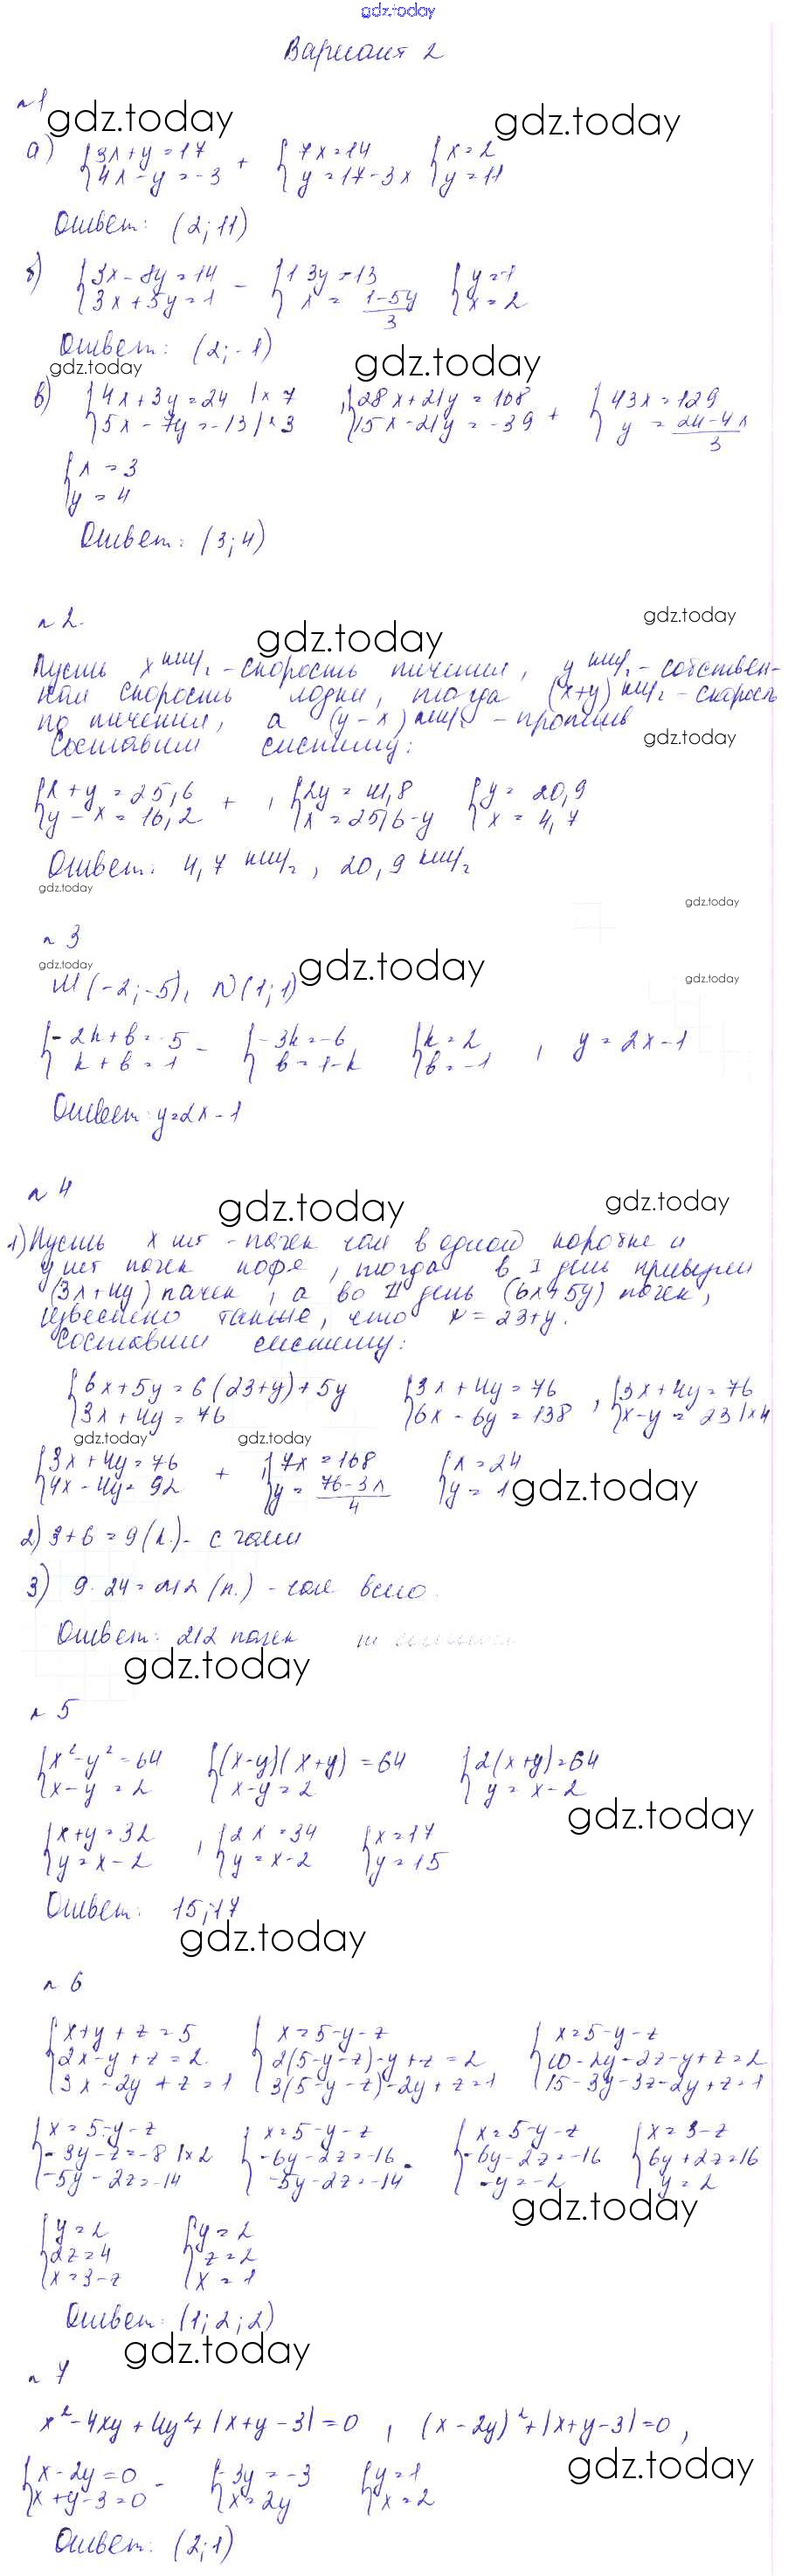 gdz.today
Вариант 2
№1
gdz.today gdz.today
а) {3x+y=17 {4x-y=-3 + {7x=14 {y=17-3x {x=2 {y=11
Ответ: (2;11)
б) {3x-8y=14 {3x+5y=1 - {13y=13 {x=(1-5y)/3 {y=-1 {x=2
Ответ: (2;-1)
gdz.today gdz.today
в) {4x+3y=24 |×7 {5x-7y=-13 |×3 , {28x+21y=168 {15x-21y=-39 + {43x=129 {y=(24-4x)/3
{x=3 {y=4
Ответ: (3;4)
№2.
gdz.today
gdz.today
Пусть x км/ч - скорость течения, y км/ч - собствен-
ная скорость лодки, тогда (x+y) км/ч - скорость
по течения, а (y-x) км/ч - против
Составим систему:
gdz.today
{x+y=25,6 {y-x=16,2 + , {2y=41,8 {x=25,6-y {y=20,9 {x=4,7
Ответ: 4,7 км/ч, 20,9 км/ч
gdz.today
gdz.today
№3
gdz.today gdz.today gdz.today
M(-2;-5), N(1;1)
{-2k+b=-5 {k+b=1 - {-3k=-6 {b=1-k {k=2 {b=-1 , y=2x-1
Ответ: y=2x-1
№4
gdz.today gdz.today
1) Пусть x шт - пачек чая в одной коробке и
y шт пачек кофе, тогда в I день привезли
(3x+4y) пачек, а во II день (6x+5y) пачек,
известно также, что x=23+y.
Составим систему:
{6x+5y=6(23+y)+5y {3x+4y=76 {3x+4y=76 {6x-6y=138 , {3x+4y=76 {x-y=23 |×4
gdz.today gdz.today
{3x+4y=76 {4x-4y=92 + , {7x=168 {y=(76-3x)/4 {x=24 {y=1
gdz.today
2) 3+6=9 (к.) - с чаем
3) 9·24=212 (п.) - чая всего.
Ответ: 212 пачек
gdz.today
№5
{x²-y²=64 {x-y=2 {(x-y)(x+y)=64 {x-y=2 {2(x+y)=64 {y=x-2
gdz.today
{x+y=32 {y=x-2 , {2x=34 {y=x-2 {x=17 {y=15
Ответ: 15;17
gdz.today
№6
{x+y+z=5 {2x-y+z=2 {3x-2y+z=1 {x=5-y-z {2(5-y-z)-y+z=2 {3(5-y-z)-2y+z=1 {x=5-y-z {10-2y-2z-y+z=2 {15-3y-3z-2y+z=1
{x=5-y-z {-3y-z=-8 |×2 {-5y-2z=-14 {x=5-y-z {-6y-2z=-16 {-5y-2z=-14 - {x=5-y-z {-6y-2z=-16 {-y=-2 {x=3-z {6y+2z=16 {y=2
gdz.today
{y=2 {2z=4 {x=3-z {y=2 {z=2 {x=1
Ответ: (1;2;2)
gdz.today
№7
x²-4xy+4y²+|x+y-3|=0 , (x-2y)²+|x+y-3|=0,
gdz.today
{x-2y=0 {x+y-3=0 - {-3y=-3 {x=2y {y=1 {x=2
Ответ: (2;1)